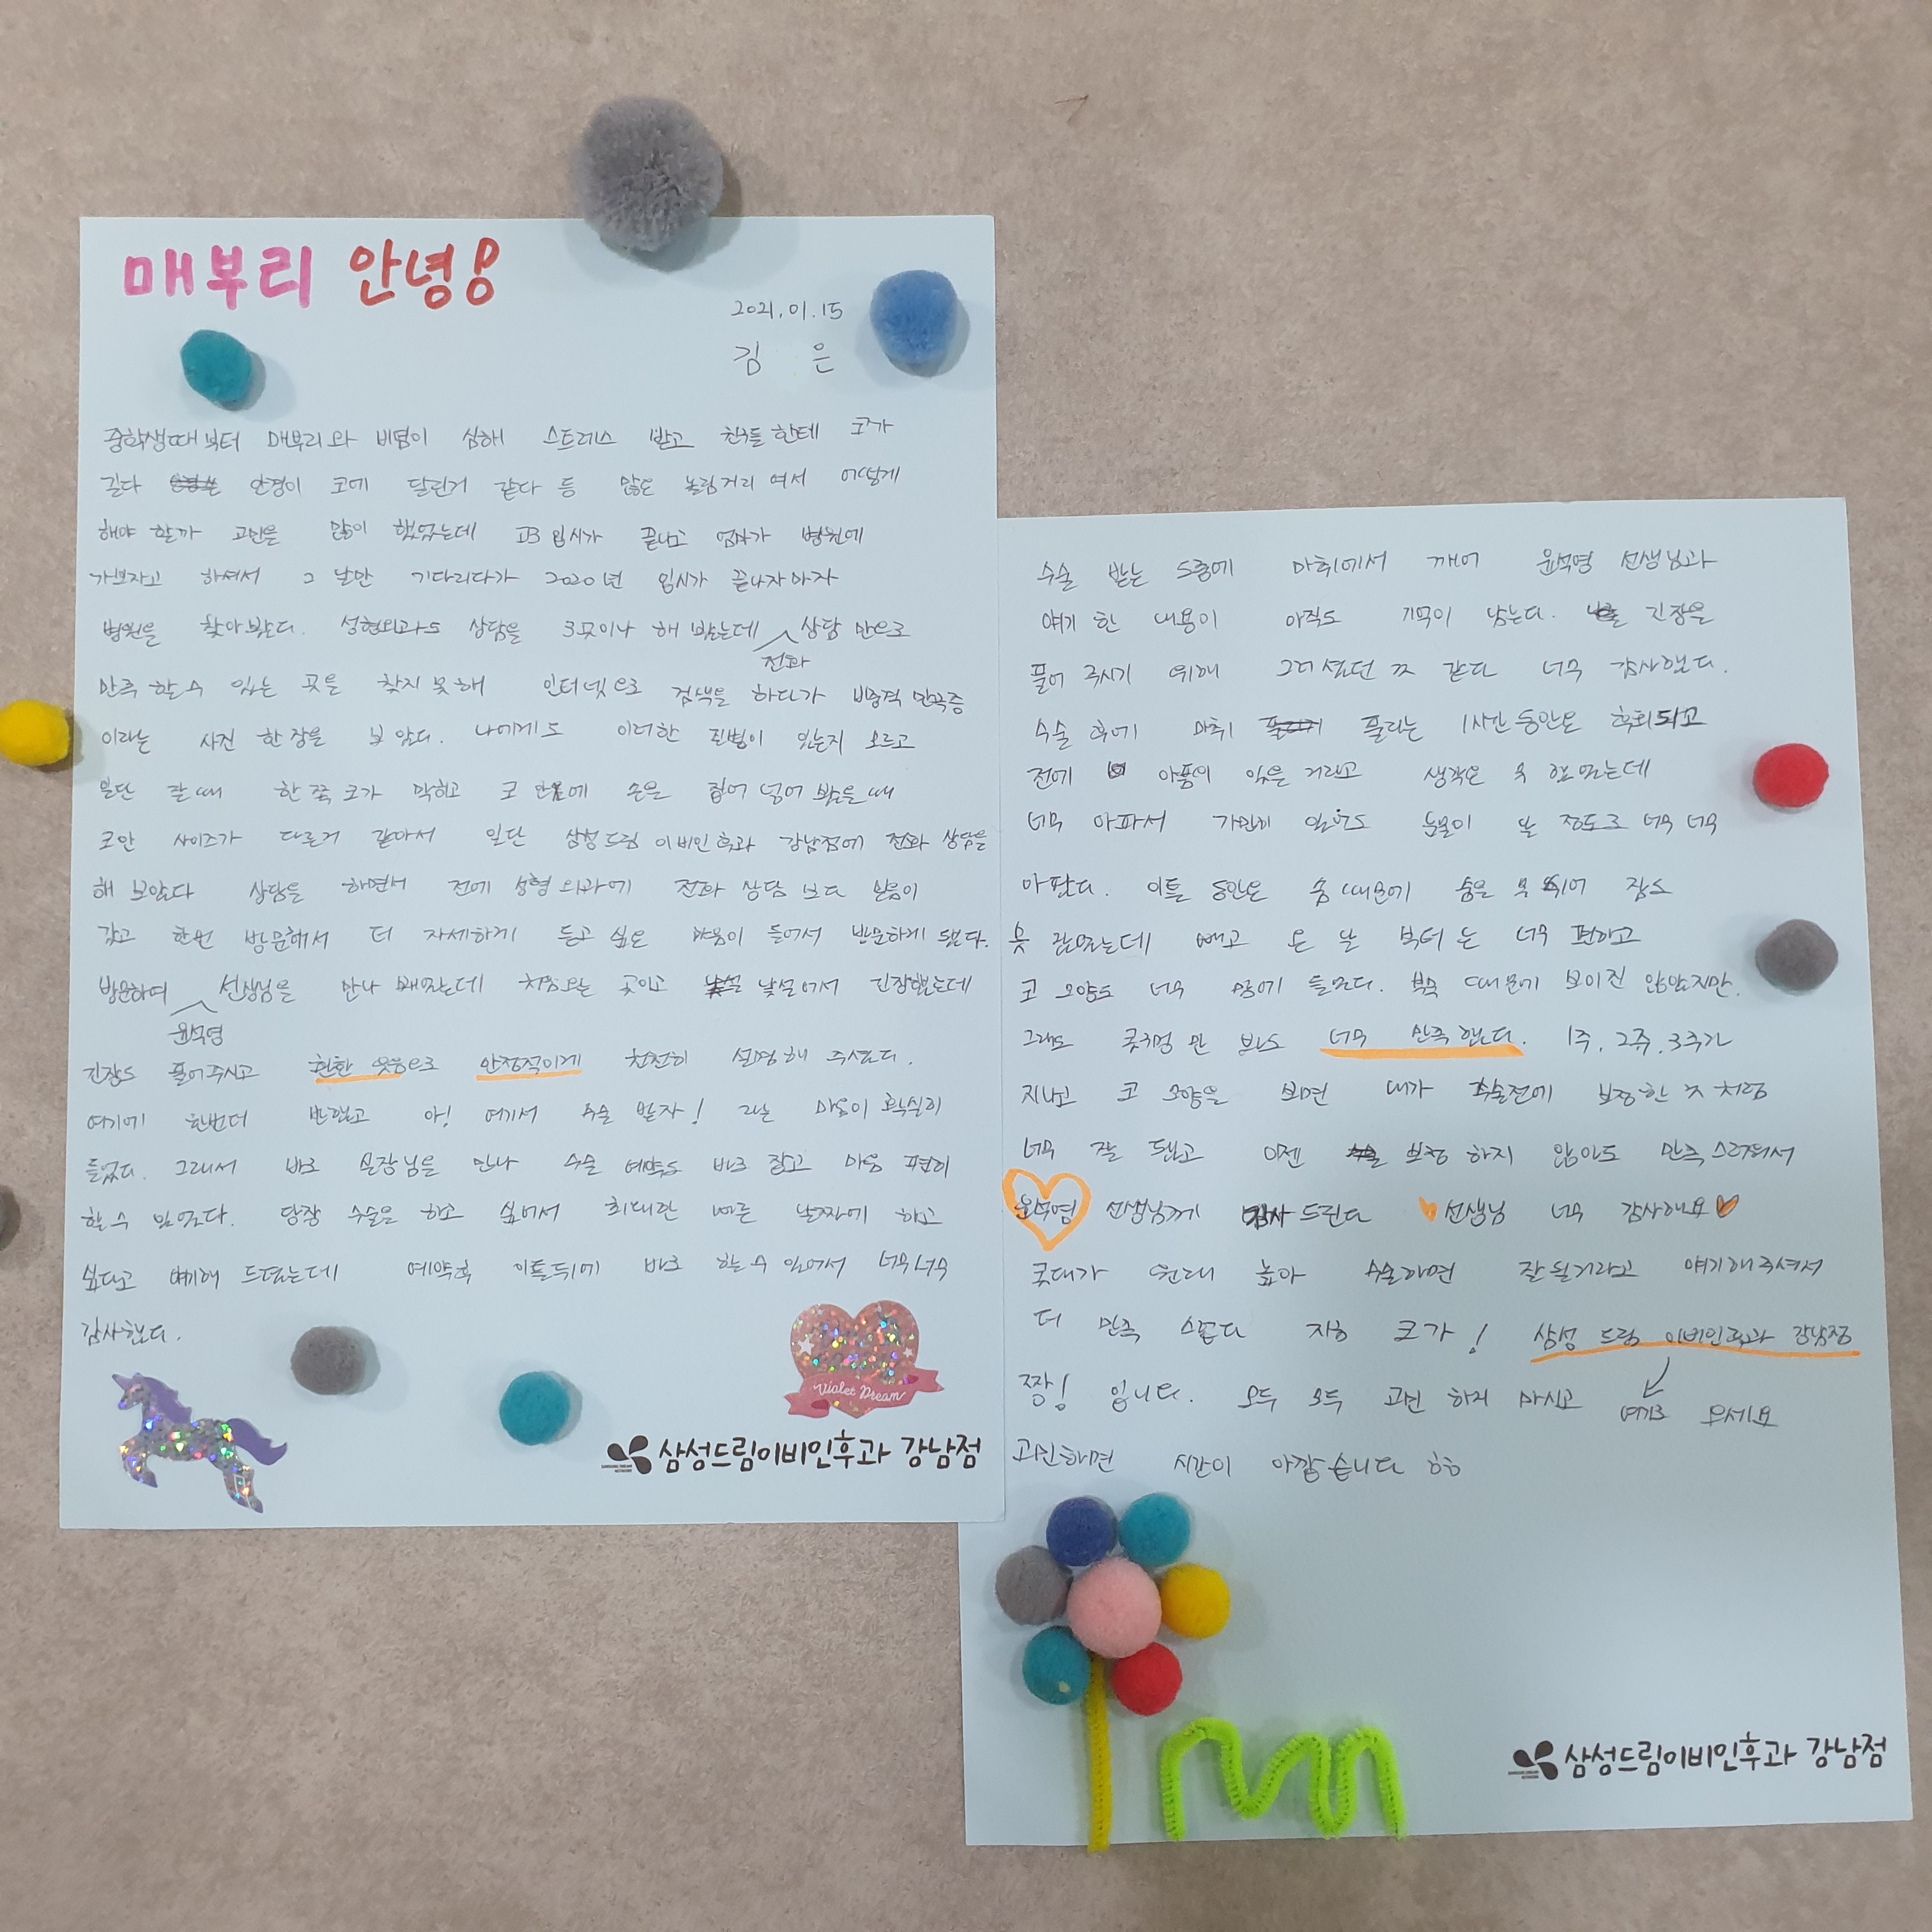 매부리 안녕!
2021.01.15
김 은
중학생때부터 매부리와 비염이 심해 스트레스 받고 친구들한테 코가
길다 안경이 코에 달린거 같다 등 많은 놀림거리 여서 어떻게
해야 할까 고민을 많이 했었는데 고3 입시가 끝나고 엄마가 병원에
가보자고 하셔서 그 날만 기다리다가 2020년 입시가 끝나자마자
병원을 찾아봤다. 성형외과도 상담을 3곳이나 해 봤는데 전화 상담 만으로
만족 할 수 있는 곳을 찾지 못해 인터넷으로 검색을 하다가 비중격 만곡증
이라는 사진 한 장을 보았다. 나에게도 이러한 질병이 있는지 모르고
일단 잘 때 한 쪽 코가 막히고 코 안에 손을 집어 넣어 봤을 때
코안 사이즈가 다른거 같아서 일단 삼성드림 이비인후과 강남점에 전화 상담을
해 보았다 상담을 하면서 전에 성형외과에 전화 상담 보다 믿음이
갔고 한번 방문해서 더 자세하게 듣고 싶은 마음이 들어서 방문하게 됐다.
방문하여 윤석영 선생님을 만나 뵀었는데 처음오는 곳이고 낯설어서 긴장했는데
긴장도 풀어주시고 환한 웃음으로 안정적이게 천천히 설명해 주셨다.
여기에 한번더 반했고 아! 여기서 수술 받자! 라는 마음이 확실히
들었다. 그래서 바로 실장님을 만나 수술 예약도 바로 잡고 마음 편히
할 수 있었다. 당장 수술을 하고 싶어서 최대한 빠른 날짜에 하고
싶다고 얘기해 드렸는데 예약후 이틀뒤에 바로 할 수 있어서 너무너무
감사했다.
Violet Dream
삼성드림이비인후과 강남점
수술 받는 도중에 마취에서 깨어 윤석영 선생님과
얘기 한 내용이 아직도 기억이 남는다. 긴장을
풀어 주시기 위해 그러셨던 것 같다 너무 감사했다.
수술 후에 마취 풀리는 1시간 동안은 후회되고
전에 아픔이 있을 거라고 생각은 못 했었는데
너무 아파서 가만히 있어도 눈물이 날 정도로 너무 너무
아팠다. 이틀 동안은 솜 때문에 숨을 못 쉬어 잠도
못 잤었는데 빼고 온 날 부터는 너무 편하고
코 모양도 너무 맘에 들었다. 붓기 때문에 보이진 않았지만.
그래도 콧구멍 만 봐도 너무 만족했다. 1주, 2주, 3주가
지나고 코 모양을 보면 내가 수술전에 보정한 것 처럼
너무 잘 됐고 이젠 보정 하지 않아도 만족스러워서
윤석영 선생님께 감사 드린다 선생님 너무 감사해요
콧대가 원래 높아 수술하면 잘 될거라고 얘기해주셔서
더 만족 스럽다 지금 코가! 삼성 드림 이비인후과 강남점
짱! 입니다. 모두 모두 고민 하지 마시고 여기로 오세요
고민하면 시간이 아깝습니다 ㅎㅎ
삼성드림이비인후과 강남점